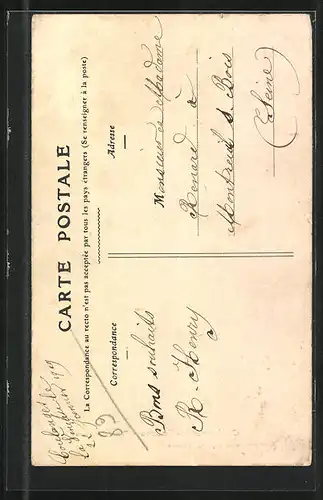 CARTE POSTALE
La Correspondance au recto n'est pas acceptée par tous les pays étrangers (Se renseigner à la poste)
Correspondance
Adresse
Bons souhaits
R. Henry
Monsieur et Madame
Renard à
Montreuil s Bois
(Seine)